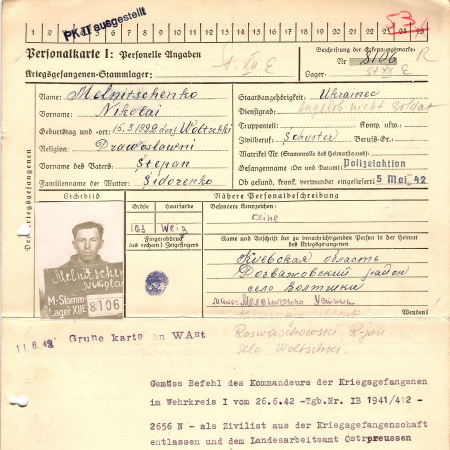 PK II ausgestellt
Personalkarte I: Personelle Angaben
Kriegsgefangenen-Stammlager: St. XII E
Beschriftung der Erkennungsmarke
Nr. 8106
Lager: St XII E
R
Des Kriegsgefangenen
Name: Melnitschenko
Vorname: Nikolai
Geburtstag und -ort: 15.3.1922 dorf Woltschki
Religion: Prawoslawni
Vorname des Vaters: Stepan
Familienname der Mutter: Sidorenko
Staatsangehörigkeit: Ukrainec
Angebl. nicht Soldat
Dienstgrad:
Truppenteil: Komp. usw.:
Zivilberuf: Schuster Berufs-Gr.:
Matrikel Nr. (Stammrolle des Heimatstaates):
Gefangennahme (Ort und Datum): Polizeiaktion
Ob gesund, krank, verwundet eingeliefert: 5 Mai 42
Lichtbild
Melnitschenko
Nikolai
M-Stamm
Lager XII E 8106
Nähere Personalbeschreibung
Größe Haarfarbe
163
Besondere Kennzeichen:
keine
Fingerabdruck
des rechten Zeigefingers
Name und Anschrift der zu benachrichtigenden Person in der Heimat
des Kriegsgefangenen
Киевская область
Розважовский район
село Волтшки
Wenden!
Roswaschowski Rjon
selo Woltschki
11.6.42 Grune karte an WASt
Gemäss Befehl des Kommandeurs der Kriegsgefangenen
im Wehrkreis I vom 26.6.42 -Tgb.Nr. IB 1941/412 -
2656 N - als Zivilist aus der Kriegsgefangenschaft
entlassen und dem Landesarbeitsamt Ostrpreussen